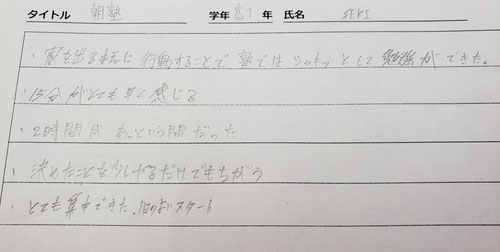 タイトル 朝塾 学年 高1 年 氏名 SEKI
・家を出る前に行動することで塾ではシャキッとして勉強ができた。
・15分がとても早く感じる
・2時間があっという間だった
・決めたことを少しやるだけでもちがう
・とても集中できた。1日のよいスタート